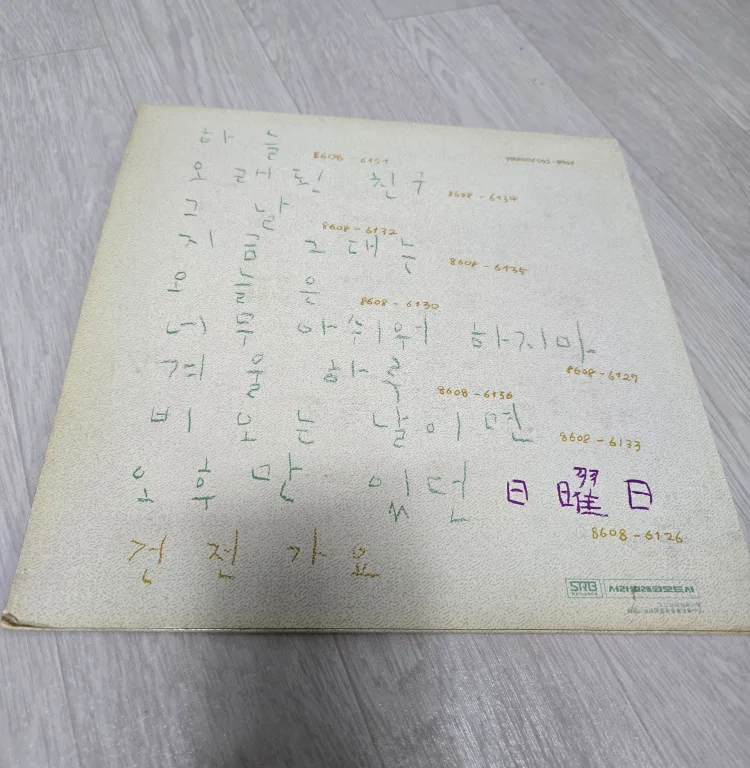 하 늘 8608 - 6131
오 래 된 친 구 8608 - 6134
그 날 8608 - 6132
지 금 그 대 는 8608 - 6135
오 늘 은 8608 - 6130
너 무 아 쉬 워 하 지 마 8608 - 6129
겨 울 하 루 8608 - 6136
비 오 는 날 이 면 8608 - 6133
오 후 만 있 던 日 曜 日 8608 - 6126
건 전 가 요
SRB 서라벌레코오드사